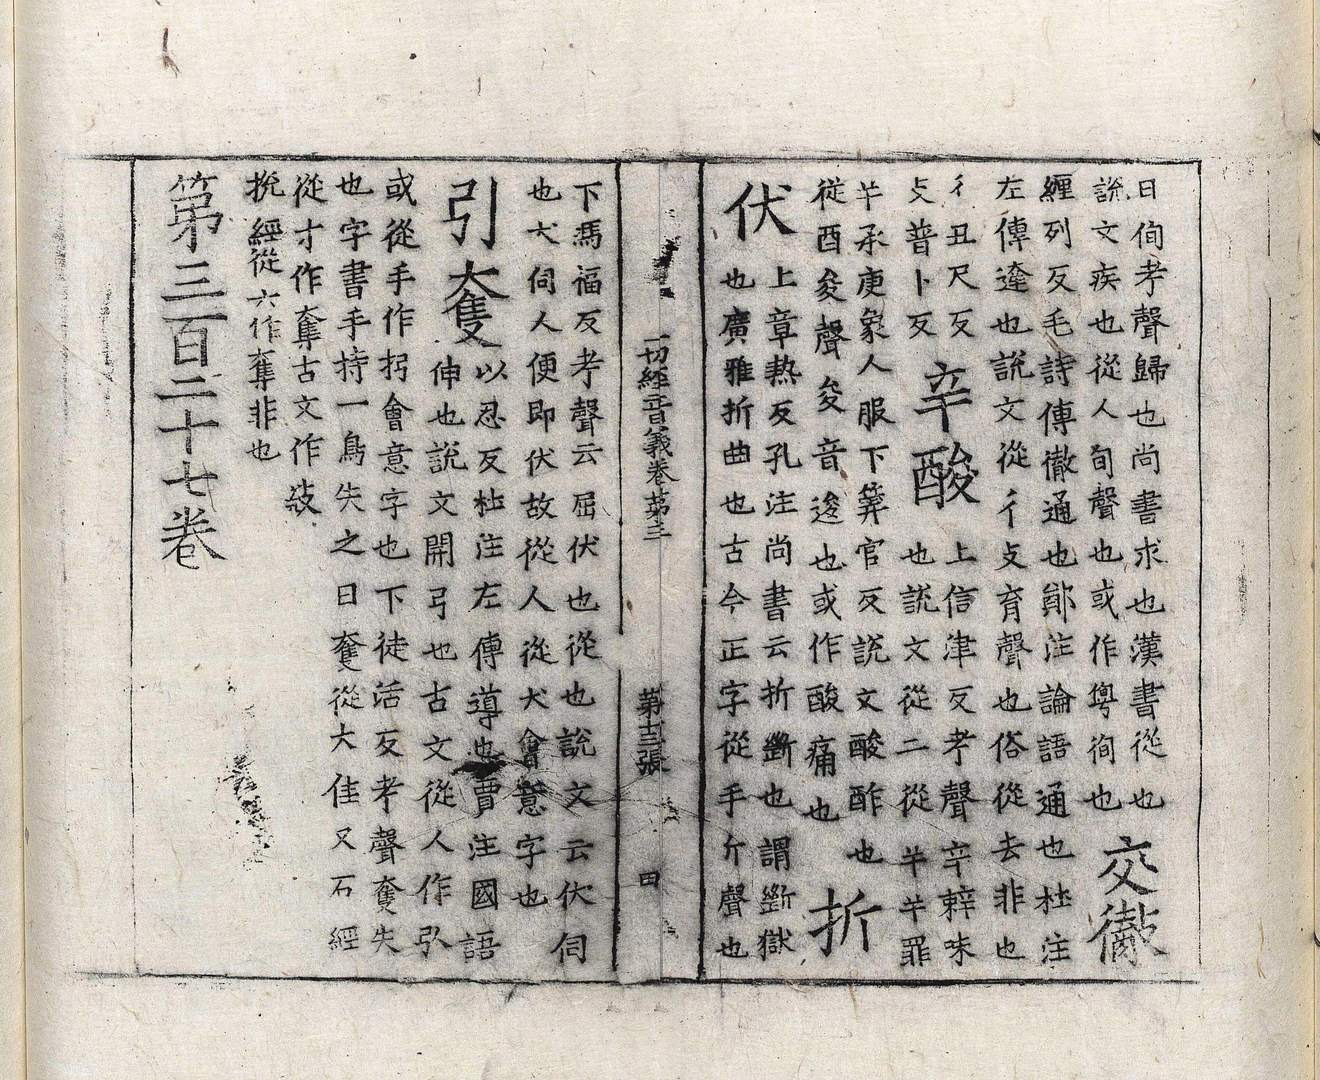 曰侚考聲歸也尚書求也漢書從也
說文疾也從人旬聲也或作粤徇也
交徹
纏列反毛詩傳徹通也鄭注論語通也杜注
左傳達也說文從彳攴育聲也俗從去非也
彳丑尺反
攴普卜反
辛酸
上信津反考聲辛辢味
也說文從二從䇂䇂罪
䇂承庚象人服下筭官反說文酸酢也
從酉夋聲夋音逡也或作酸痛也
折
伏
上章熱反孔注尚書云折斷也謂斷獄
也廣雅折曲也古今正字從手斤聲也
一切經音義卷第三 第十三張 田
下馮福反考聲云屈伏也從也說文云伏伺
也犬伺人便即伏故從人從犬會意字也
引奪
以忍反杜注左傳導也賈注國語
伸也說文開弓也古文從人作弘
或從手作抅會意字也下徒活反考聲奪失
也字書手持一鳥失之曰奪從大隹又石經
從寸作奪古文作敚
挩經從六作奪非也
第三百二十七卷